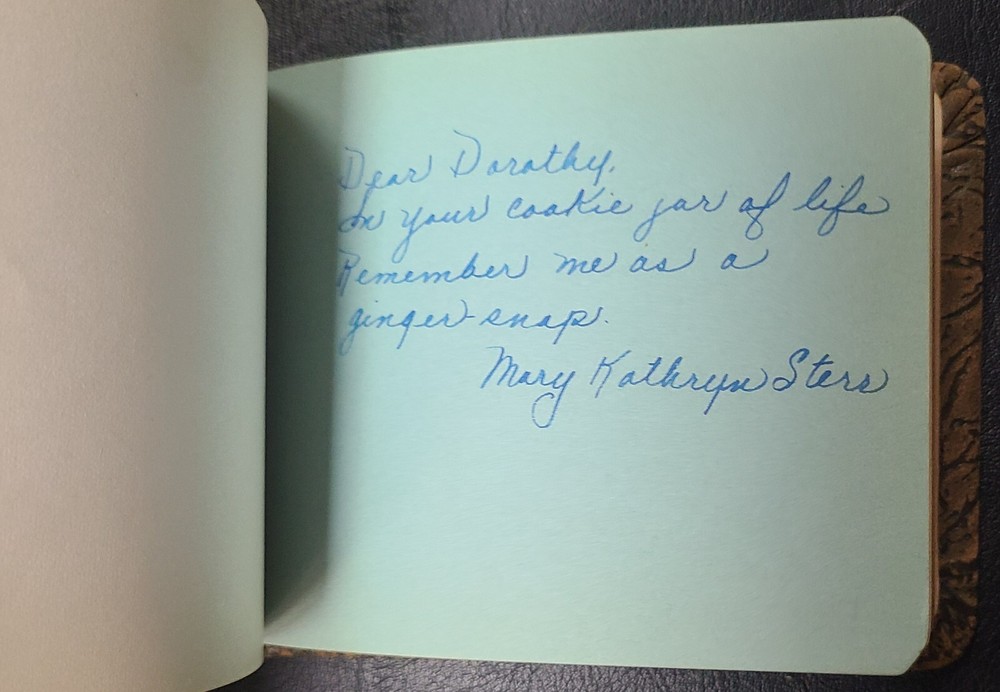 Dear Dorothy,
In your cookie jar of life
Remember me as a
ginger-snap.
Mary Kathryn Sterr